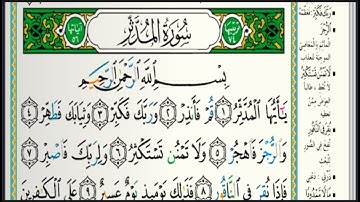 ترتيبها ٧٤ سُورَةُ المُدَّثِّر آياتها ٥٦
بِسْمِ ٱللَّهِ ٱلرَّحْمَٰنِ ٱلرَّحِيمِ
يَٰٓأَيُّهَا ٱلْمُدَّثِّرُ ١ قُمْ فَأَنذِرْ ٢ وَرَبَّكَ فَكَبِّرْ ٣ وَثِيَابَكَ فَطَهِّرْ ٤
وَٱلرُّجْزَ فَٱهْجُرْ ٥ وَلَا تَمْنُن تَسْتَكْثِرُ ٦ وَلِرَبِّكَ فَٱصْبِرْ ٧
فَإِذَا نُقِرَ فِى ٱلنَّاقُورِ ٨ فَذَٰلِكَ يَوْمَئِذٍ يَوْمٌ عَسِيرٌ ٩ عَلَى ٱلْكَٰفِرِينَ